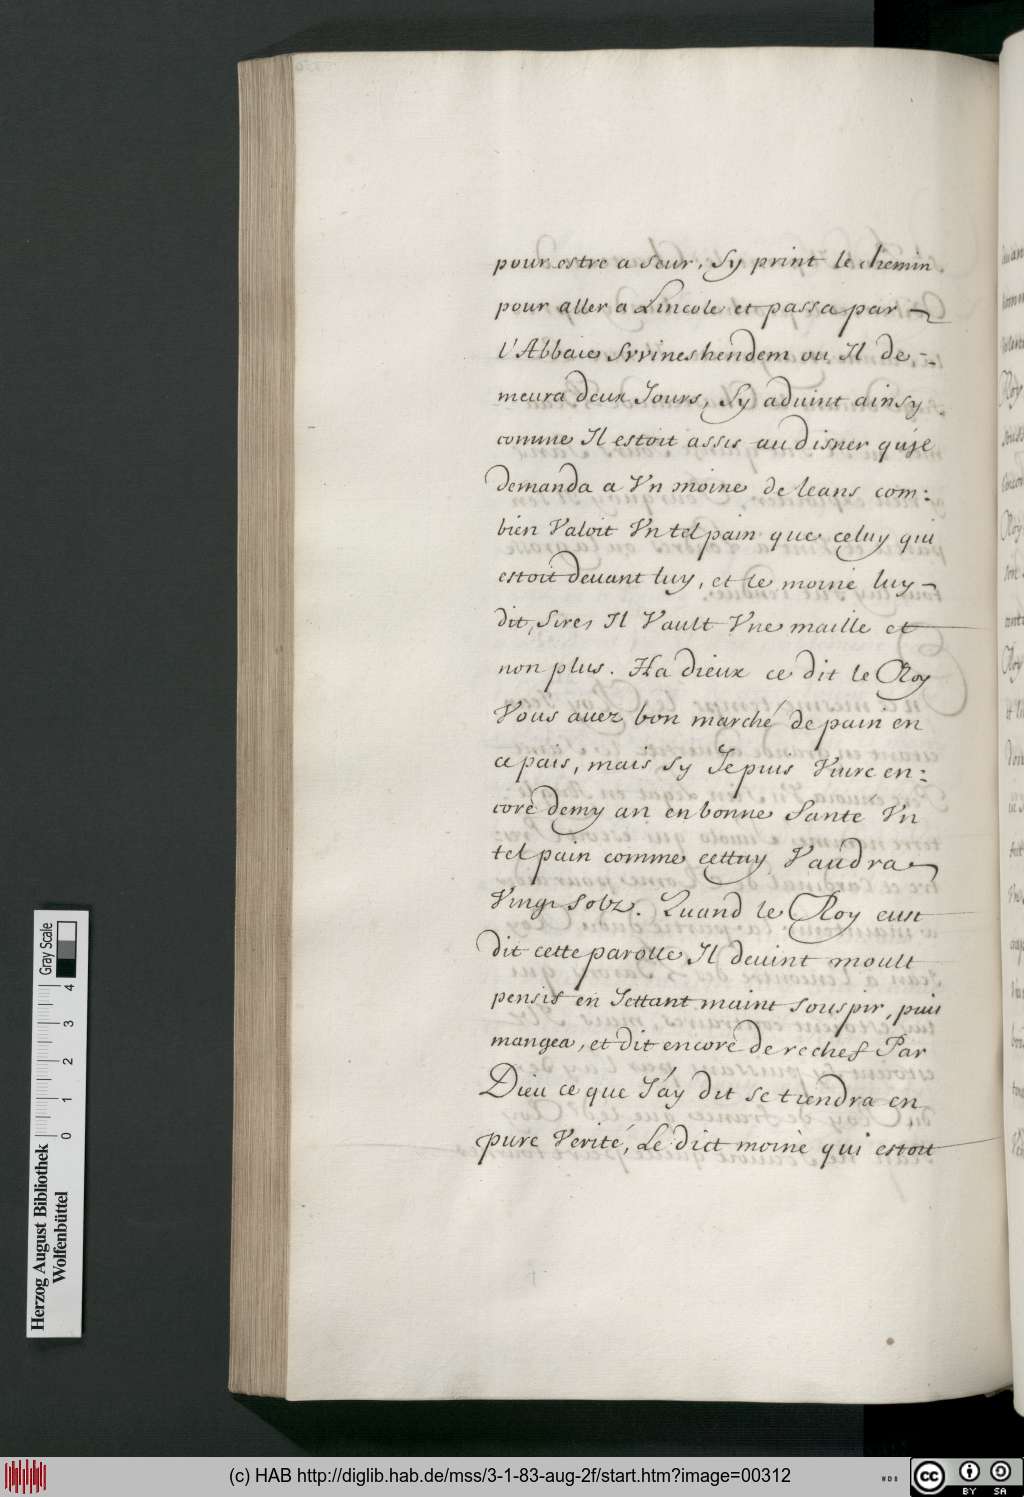 pour estre a seur, Sy print le chemin
pour aller a Lincole et passa par
l'Abbaie Svvineshendem ou Il de-
meura deux Jours, Sy aduint ainsy
comme Il estoit assis au disner qu'Il
demanda a Vn moine de leans com:
bien Valoit Vn tel pain que celuy qui
estoit deuant luy, et le moine luy
dit, Sire, Il Vault Vne maille et
non plus. Ha dieux ce dit le Roy
Vous auez bon marché de pain en
ce pais, mais sy Je puis Viure en:
core demy an en bonne Santé Vn
tel pain comme cettuy Vaudra
Vingt solz. Quand le Roy eust
dit cette parolle Il deuint moult
pensif en Jettant maint souspir, puis
mangea, et dit encore derechef Par
Dieu ce que J'ay dit se tiendra en
pure Verité, Le dict moine qui estoit
Herzog August Bibliothek
Wolfenbüttel
0 1 2 3 4
Gray Scale
(c) HAB http://diglib.hab.de/mss/3-1-83-aug-2f/start.htm?image=00312
WDB
CC BY SA